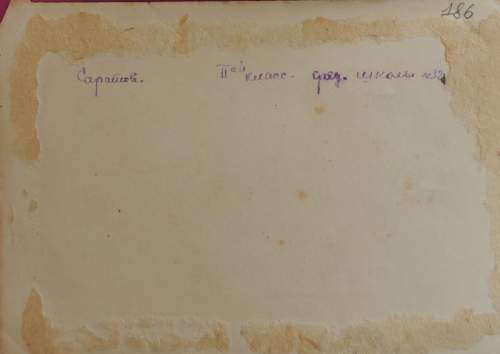 186
Саратов. IIой класс. сред. школы №32